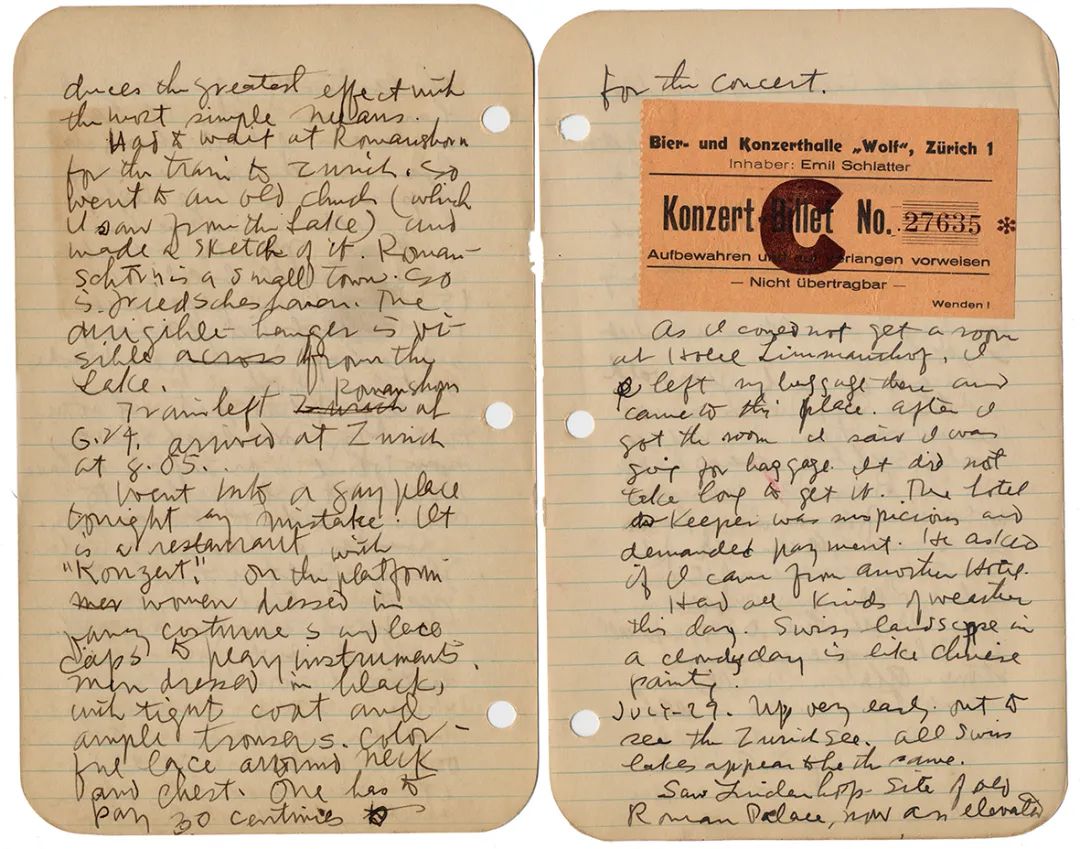 duces the greatest effect with
the most simple means.
Had to wait at Romanshorn
for the train to Zurich. So
went to an old church (which
I saw from the Lake) and
made a sketch of it. Roman-
schorn is a small town. So
is Friedscheshaven. The
dirigible hanger is vi-
sible across from the
Lake.
Train left Zurich Romanshorn at
6.24. arrived at Zurich
at 8.05..
Went into a gay place
tonight by mistake. It
is a restaurant with
"Konzert." On the platform
men women dressed in
fancy costumes and lace
caps to play instruments.
men dressed in black,
with tight coat and
ample trousers. Color-
ful lace around neck
and chest. One has to
pay 30 centimes
for the concert.
Bier- und Konzerthalle „Wolf“, Zürich 1
Inhaber: Emil Schlatter
Konzert-Billet No. 27635 *
C
Aufbewahren und auf Verlangen vorweisen
— Nicht übertragbar —
Wenden!
As I could not get a room
at Hotel Limmathof, I
left my luggage there and
came to this place. after I
got the room I said I was
going for baggage. It did not
take long to get it. The hotel
Keeper was suspicious and
demanded payment. He asked
if I came from another Hotel.
Had all kinds of weather
this day. Swiss landscape in
a cloudy day is like chinese
painting.
JULY-29. Up very early. out to
see the Zurich See. all Swiss
lakes appear to be the same.
Saw Lindenhop- Site of old
Roman Palace, now an elevated